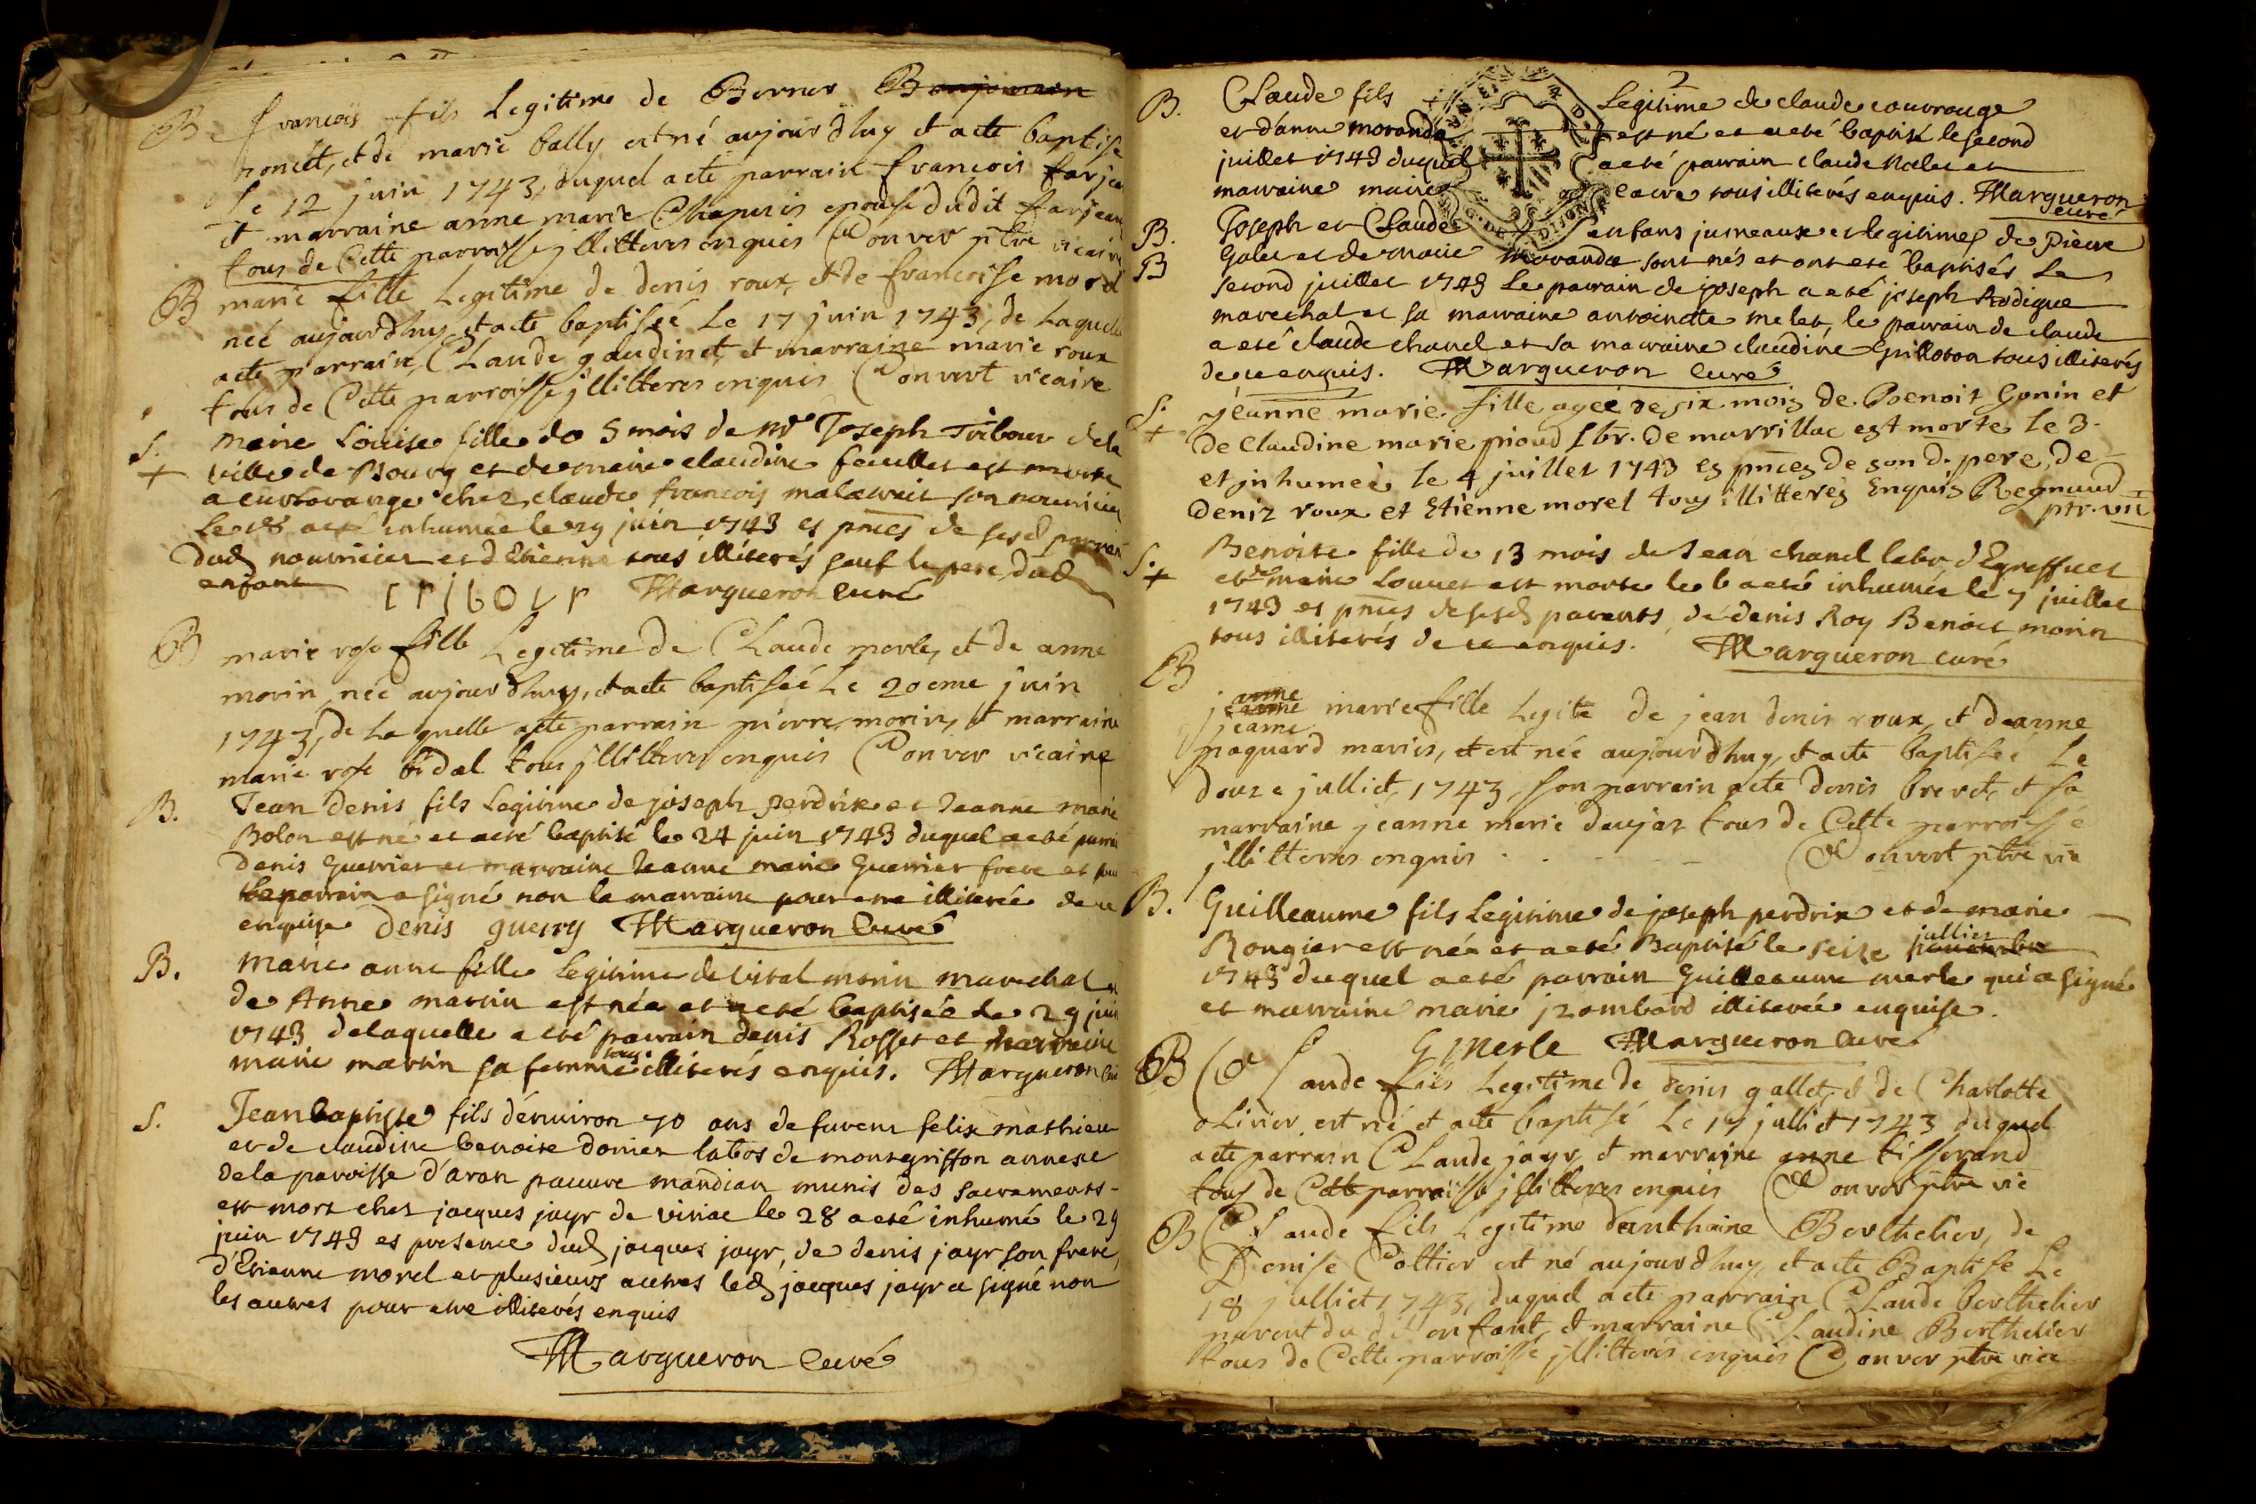 B francois fils Legitime de Berner Benjamin
poncet, et de marie bally est né aujourdhuy et a eté baptisé
Le 12 juin 1743, duquel a eté parrain francois farjean
et marraine anne marie Chapuis epouse dudit farjean
tous de Cette parroisse jllitteres enquis Convers ptre vicaire
B marie fille Legitime de denis roux, et de francoise morel
neé aujourdhuy et a eté baptiseé Le 17 juin 1743, de Laquelle
a eté parrain, CLaude gaudinet, et marraine marie roux
tous de Cette parroisse jllitteres enquis Convert vicaire
S. + marie Louise fille de 5 mois de Mr Joseph Tribour dela
ville de Bourg et de marie claudine feuillet est morte
a curtovange chez claude francois malatrait son nouricier
Le 18 a eté inhumée le 19 juin 1743 es pnces de sesd parrens
dud nourricier et d Etienne tous illiterés sauf le pere dud
enfant tribour Margueron Curé
B marie rose fille Legitime de CLaude merle, et de anne
morin neé aujourdhuy, et a eté baptiseé Le 20eme juin
1743, de La quelle a eté parrain pierre morin, et marraine
marie rose bidal tous jllitteres enquis Conver vicaire
B. Jean Denis fils Legitime de joseph perdrix et Jeanne marie
Bolon est né et a eté baptisé le 24 juin 1743 duquel a eté parrain
Denis Guerrier et marraine Jeanne marie Guerrier frere et
le parrain a signé non la marraine pour etre illiterée de ce
enquise denis guerry Margueron Curé
B. Marie anne fille Legitime de vital morin marechal et
de Anne martin est née et a eté baptisée le 29 juin
1743 de laquelle a eté parrain denis Rosset et marraine
marie martin sa femme tous illiterés enquis. Margueron Curé
S. Jean baptiste fils d'environ 70 ans de furent felix mathieu
et de claudine benoite donier labos de montgriffon annexe
de la paroisse d'aran pauvre mandian munis des sacrements
est mort chez jacques jayr de viriac le 28 a eté inhumé le 29
juin 1743 es presence dud jacques jayr, de denis jayr son frere,
d'Etienne morel et plusieurs autres led jacques jayr a signé non
les autres pour etre illiterés enquis
Margueron Curé
2
B. CLaude fils Legitime de claude couvrouge
et d'anne morand est né et a eté baptisé le second
juillet 1743 duquel a eté parrain claude Nolet et
marraine marie tous illiterés enquis. Margueron
curé
B. Joseph et Claude enfans jumeaux et legitimes de Pierre
B Galet et de marie morandu sont nés et ont eté baptisés Le
second juillet 1743 Le parrain de joseph a eté joseph Rodique
marechal et sa marraine antoinette melet, le parrain de claude
a eté claude chanel et sa marraine claudine Guilloton tous illiterés
de ce enquis. Margueron Curé
S. + jeanne marie fille ageé de six mois de Benoit Gonin et
de Claudine marie pioud Lbr. de marrillac est morte Le 3.
et jnhumeé le 4 juillet 1743 es pnces de son d. pere, de
deniz roux et Etienne morel tous illitterés Enquis Regnaud
ptr. vic
S. + Benoite fille de 13 mois de Jean chanel labr d'Egreffuel
et de marie Louvet est morte le 6 a eté inhumée le 7 juillet
1743 es pnces de sesd parents, de denis Roy Benoit morin
tous illiterés de ce enquis. Margueron curé
B
jeanne marie fille Legite de jean denis roux, et deanne
paquerd maries, et est née aujourdhuy et a eté baptiseé Le
douze julliet, 1743, son parrain a eté denis brevet, et sa
marraine jeanne marie daujat tous de Cette parroisse
jllitteres enquis Convert ptre vic
B. Guilleaume fils Legitime de joseph perdrix et de marie
Rongier est née et a eté Baptisé le seize juillet
1743 duquel a eté parrain Guilleaume merle qui a signé
et marraine marie jzombard illiterée enquise.
G merle Margueron Curé
B CLaude fils Legitime de denis gallet, et de Charlotte
olivier est né et a eté baptisé Le 17 julliet 1743 duquel
a eté parrain CLaude jayr, et marraine anne tisserand
tous de Cette parroisse jllitteres enquis Conver ptre vic
B CLaude fils Legitime danthoine Berthelier, de
Denise Cottier est né aujourdhuy, et a eté Baptisé Le
18 julliet 1743, duquel a eté parrain CLaude berthelier
parent du dit enfant, et marraine CLaudine Berthelier
tous de Cette parroisse jllitteres enquis Conver ptre vice